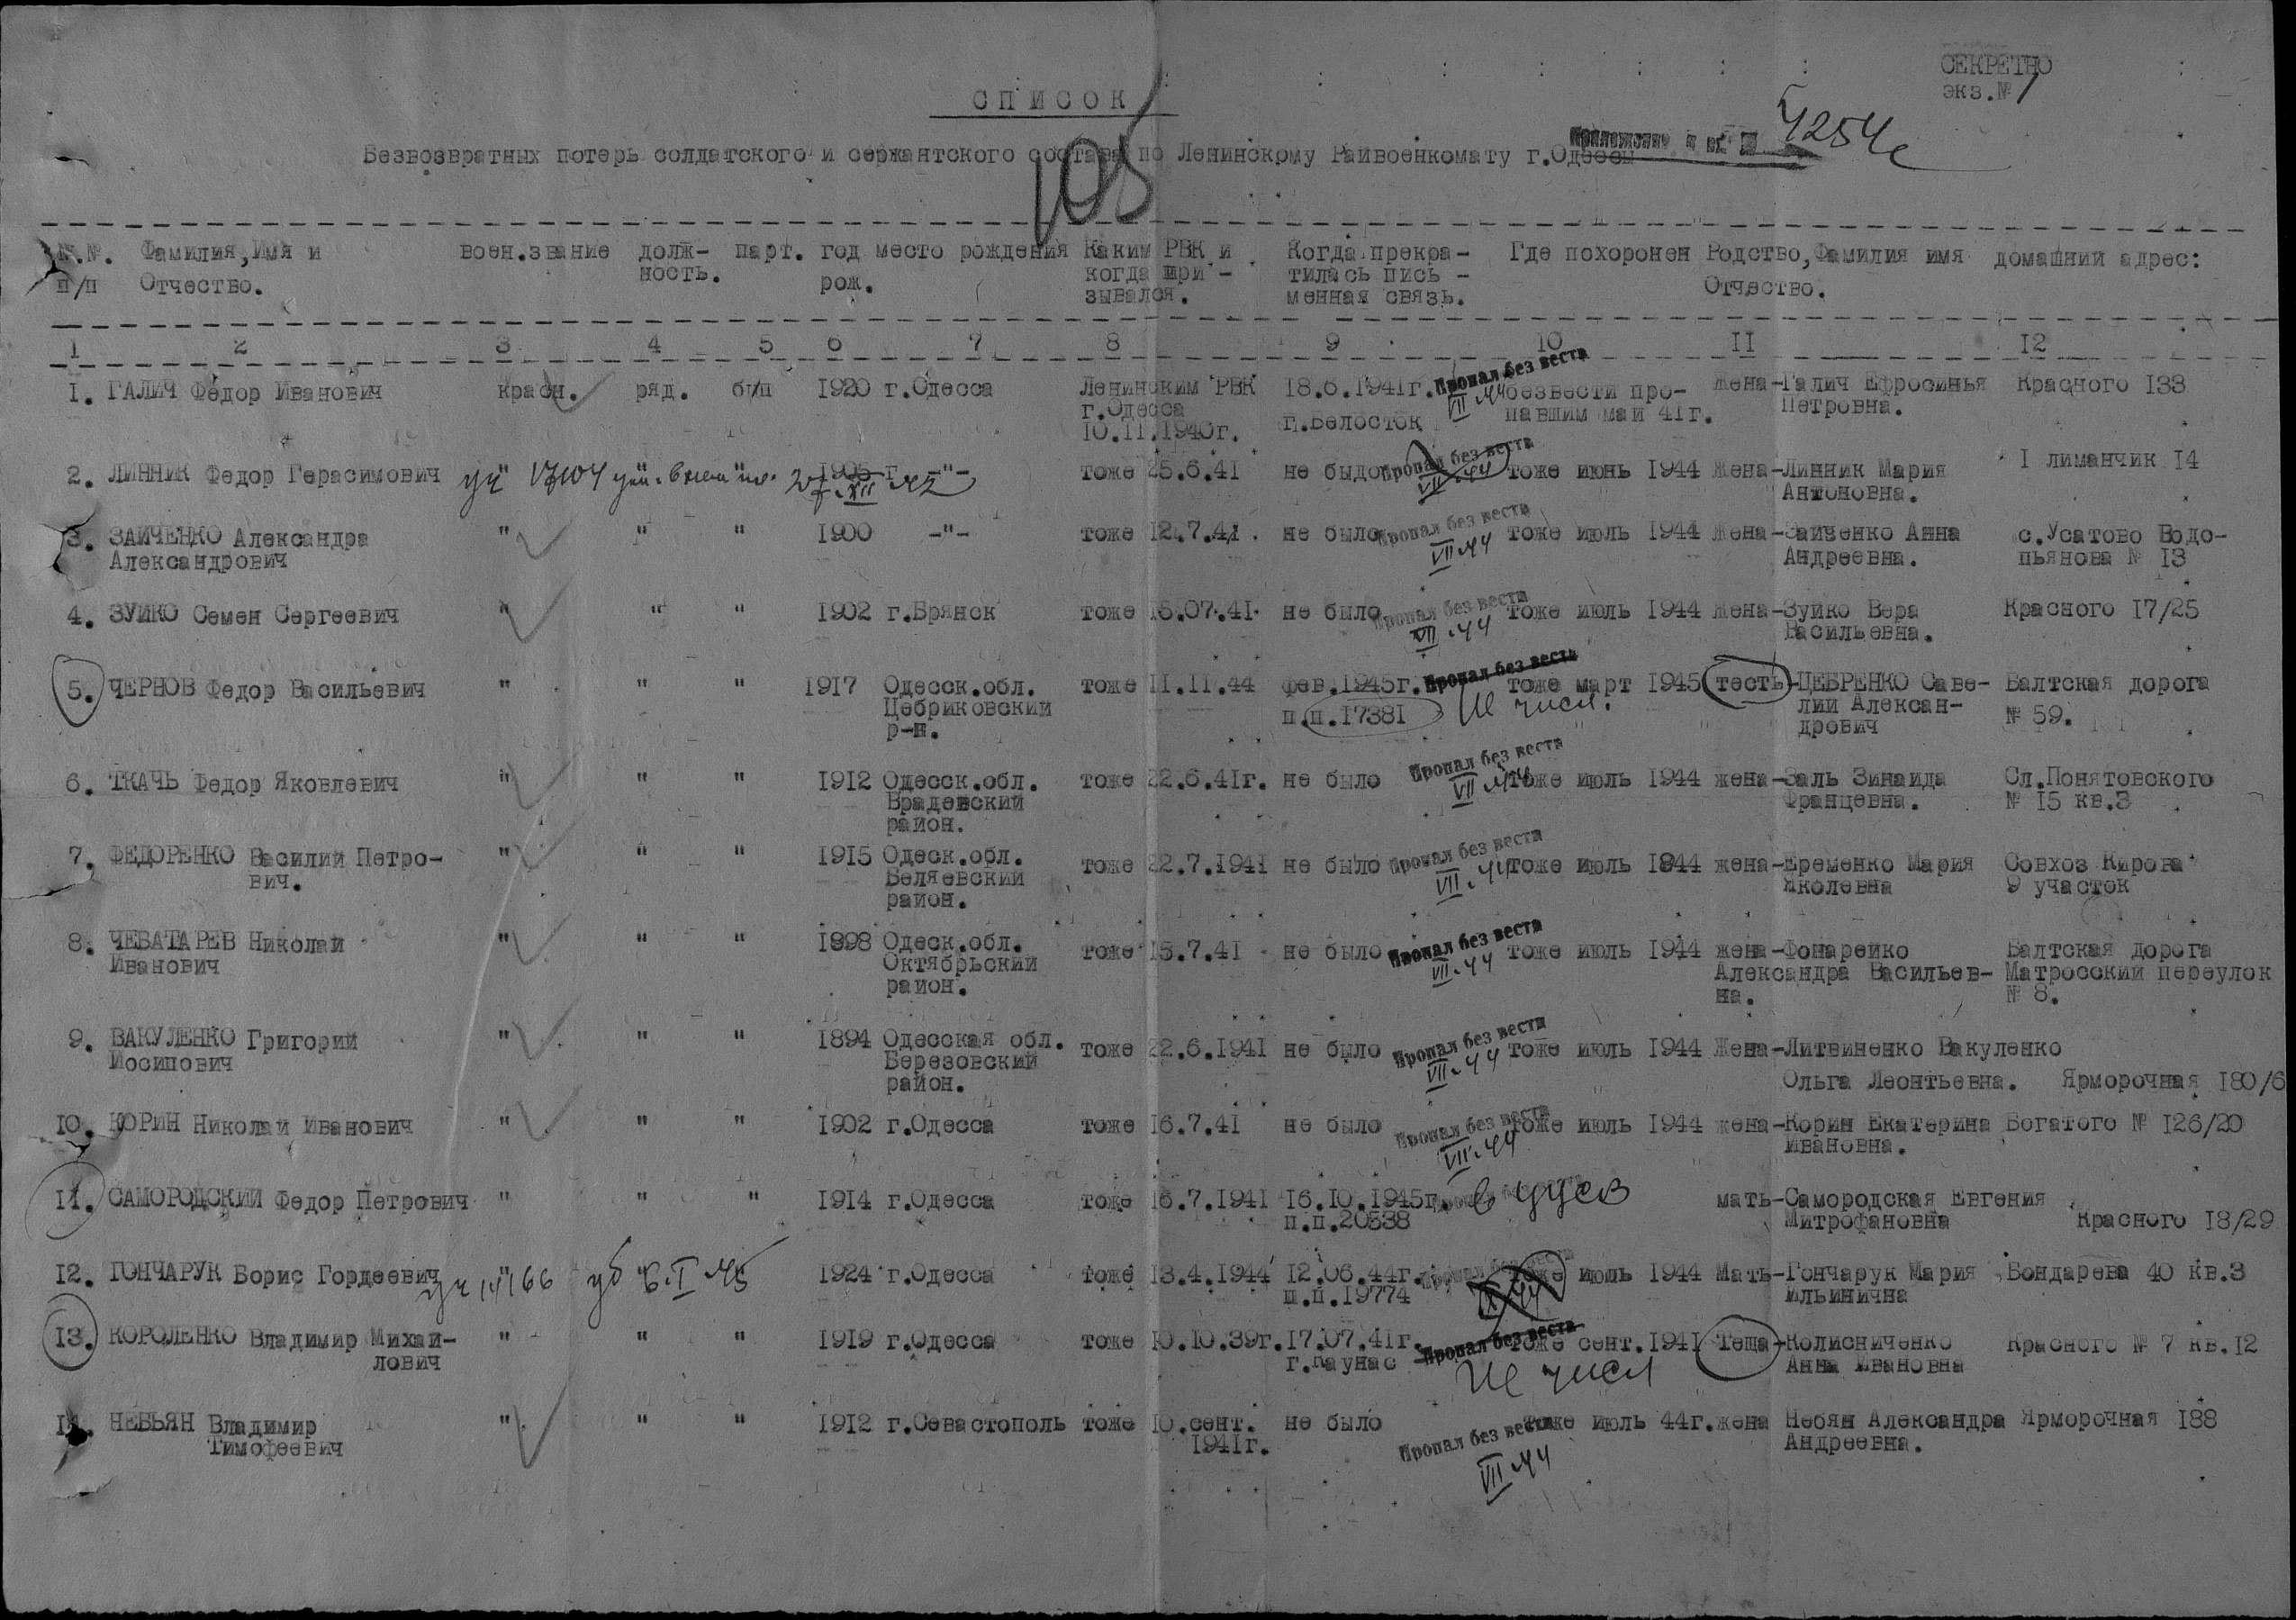 СЕКРЕТНО
экз.№ 1
СПИСОК
105
4254с
Безвозвратных потерь солдатского и сержантского состава по Ленинскому Райвоенкомату г.Одессы
№.№. Фамилия,Имя и воен.звание долж- парт. год место рождения Каким РВК и Когда прекра- Где похоронен Родство,Фамилия имя домашний адрес:
п/п Отчество. ность. рож. когда при- тилась пись- Отчество.
зывался. менная связь.
1 2 3 4 5 6 7 8 9 10 11 12
1. ГАЛИЧ Федор Иванович красн. ряд. б/п 1920 г.Одесса Ленинским РВК 18.6.1941г. Пропал без вести безвести про- жена-Галич Ефросинья Красного 133
г.Одесса г.Белосток VII.44 павшим май 41г. Петровна.
10.11.1940г.
2. ЛИННИК Федор Герасимович " " 1905 г -"- тоже 25.6.41 не быдо Пропал без вести тоже июнь 1944 Жена-Линник Мария 1 лиманчик 14
уч 17104 XII 42 VII.44 Антоновна.
3. ЗАЙЧЕНКО Александра " " " 1900 -"- тоже 12.7.41. не было Пропал без вести тоже июль 1944 Жена-Зайченко Анна с.Усатово Водо-
Александрович VII.44 Андреевна. пьянова № 13
4. ЗУЙКО Семен Сергеевич " " " 1902 г.Брянск тоже 16.07.41. не было Пропал без вести тоже июль 1944 жена-Зуйко Вера Красного 17/25
VII.44 Васильевна.
5. ЧЕРНОВ Федор Васильевич " " " 1917 Одесск.обл. тоже 11.11.44 фев.1945г. Пропал без вести тоже март 1945 тесть-ЦЕБРЕНКО Саве- Балтская дорога
Цебриковский п.п.17381 Не числ. лий Алексан- № 59.
р-н. дрович
6. ТКАЧЬ Федор Яковлевич " " " 1912 Одесск.обл. тоже 22.6.41г. не было Пропал без вести тоже июль 1944 жена-Заль Зинаида Сл.Понятовского
Врадевский VII.44 Францевна. № 15 кв.3
район.
7. ФЕДОРЕНКО Василий Петро- " " " 1915 Одеск.обл. тоже 22.7.1941 не было Пропал без вести тоже июль 1944 жена-Еременко Мария Совхоз Кирова
вич. Беляевский VII.44 Яколевна 9 участок
район.
8. ЧЕБАТАРЕВ Николай " " " 1898 Одеск.обл. тоже 15.7.41 не было Пропал без вести тоже июль 1944 жена-Фонарейко Балтская дорога
Иванович Октябрьский VII.44 Александра Васильев- Матросский переулок
район. на. № 8.
9. ВАКУЛЕНКО Григорий " " " 1894 Одесская обл. тоже 22.6.1941 не было Пропал без вести тоже июль 1944 Жена-Литвиненко Вакуленко
Иосипович Березовский VII.44 Ольга Леонтьевна. Ярморочная 180/6
район.
10. КОРИН Николай Иванович " " " 1902 г.Одесса тоже 16.7.41 не было Пропал без вести тоже июль 1944 жена-Корин Екатерина Богатого № 126/20
VII.44 Ивановна.
11. САМОРОДСКИЙ Федор Петрович " " " 1914 г.Одесса тоже 16.7.1941 16.10.1945г. мать-Самородская Евгения
п.п.20538 Митрофановна Красного 18/29
12. ГОНЧАРУК Борис Гордеевич " " " 1924 г.Одесса тоже 13.4.1944 12.06.44г. тоже июль 1944 Мать-Гончарук Мария Бондарева 40 кв.3
уб 6.I.45 п.п.19774 Ильинична
13. КОРОЛЕНКО Владимир Михай- " " " 1919 г.Одесса тоже 10.10.39г. 17.07.41г. Пропал без вести тоже сент.1941 Теща-Колисниченко Красного № 7 кв.12
лович г.Каунас Не числ Анна Ивановна
14. НЕБЬЯН Владимир " " " 1912 г.Севастополь тоже 10.сент. не было Пропал без вести тоже июль 44г. жена Небян Александра Ярморочная 188
Тимофеевич 1941г. VII.44 Андреевна.